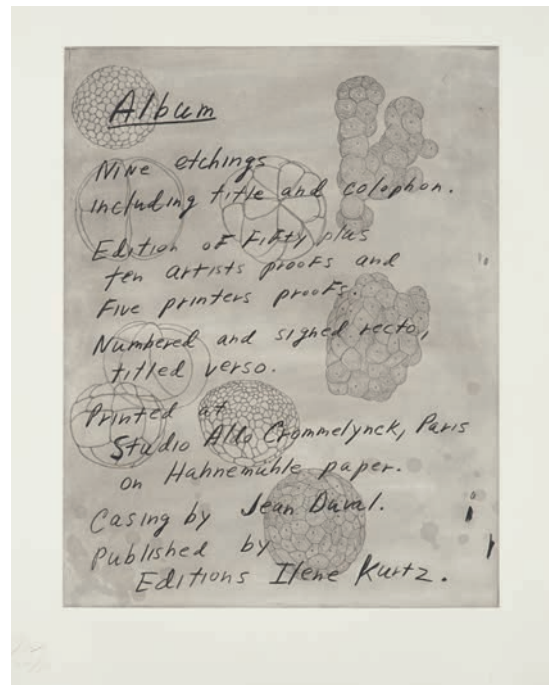 Album
Nine etchings
including title and colophon.
Edition of Fifty plus
ten artists proofs and
Five printers proofs.
Numbered and signed recto,
titled verso.
Printed at
Studio Aldo Crommelynck, Paris
on Hahnemühle paper.
Casing by Jean Duval.
Published by
Editions Ilene Kurtz.